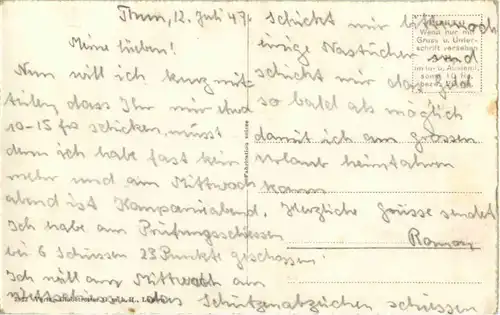 Thun, 12. Juli 47.
Meine lieben!
Nun will ich kurz mit-
teilen, dass Ihr mir etwa
10-15 frs schicken müsst
denn ich habe fast kein
mehr und am Mittwoch
abend ist Kompanieabend.
Ich habe am Prüfungsschiessen
bei 6 Schüssen 23 Punkte geschossen.
Ich will am Mittwoch am
das Schützenabzeichen schiessen
Schickt mir bitte noch
einige Nastücher und
schickt mir das Geld
so bald als möglich
damit ich am grossen
Urlaub heimfahren
kann
Herzliche Grüsse sendet
Wenn nur mit
Gruss u. Unter-
schrift versehen